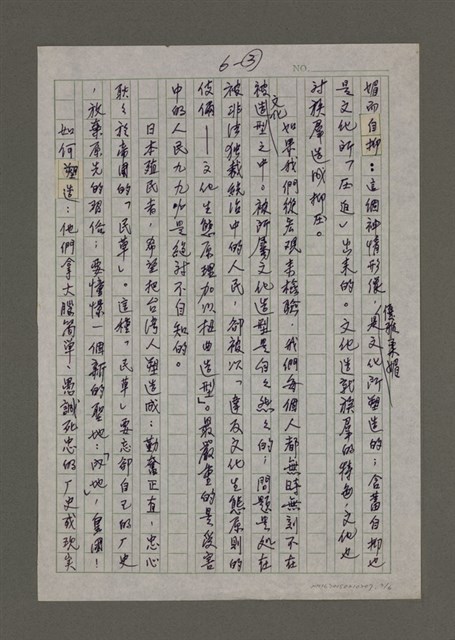 6-③
NO.
媚而自抑:這個神情形優雅柔媚,是文化所塑造的;含蓄自抑也
是文化所「压迫」出来的。文化造就族羣的特色,文化也
对族羣造成抑压。
如果我們從宏观来檢驗,我們每個人都無時無刻不在
被文化造型之中。被所屬文化造型是自自然然的;問題是处在
被非法独裁統治中的人民,卻被以「違反文化生態原則的
伎倆——文化生態原理加以扭曲造型」。最嚴重的是受害
中的人民九九%是絕对不自知的。
日本殖民者,希望把台湾人塑造成:勤奮正直,忠心
耿々於帝國的「民草」。這種「民草」要忘卻自己的厂史
,放棄原先的習俗;要憧憬一個新的聖地:「内地」,皇國!
如何塑造:他們拿大腦簡单、愚誠死忠的厂史或現实